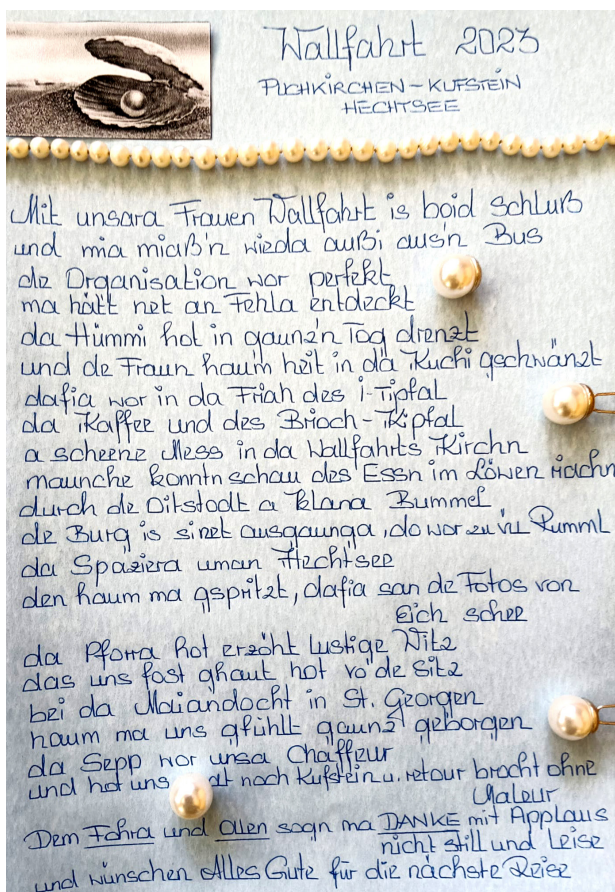 Wallfahrt 2023
PUCHKIRCHEN – KUFSTEIN
HECHTSEE
Mit unsara Frauen Wallfahrt is boid Schluß
und mia miaß'n wieda außi aus'n Bus
de Organisation wor perfekt
ma hätt net an Fehla entdeckt
da Hümmi hot in gaunz'n Tog drenzt
und de Fraun haum heit in da Kuchi gschwänzt
dafia wor in da Friah des i-Tipfal
da Kaffee und des Brioch-Kipfal
a scheene Mess in da Wallfahrts Kirchn
maunche konntn schau des Essn im Löwen riachn
durch de Oitstodt a klana Bummel
de Burg is sinet ausgaunga, do wor zu vü Rumml
da Spaziera uman Hechtsee
den haum ma gspritzt, dafia san de Fotos von
Eich schee
da Pforra hot erzöht lustige Witz
das uns fost ghaut hot vo de Sitz
bei da Maiandocht in St. Georgen
haum ma uns gfühlt gaunz geborgen
da Sepp wor unsa Chaffeur
und hot uns noch Kufstein u. retour brocht ohne
Maleur
Dem Fohra und Ollen sogn ma DANKE mit Applaus
nicht still und Leise
und wünschen Alles Gute für die nächste Reise